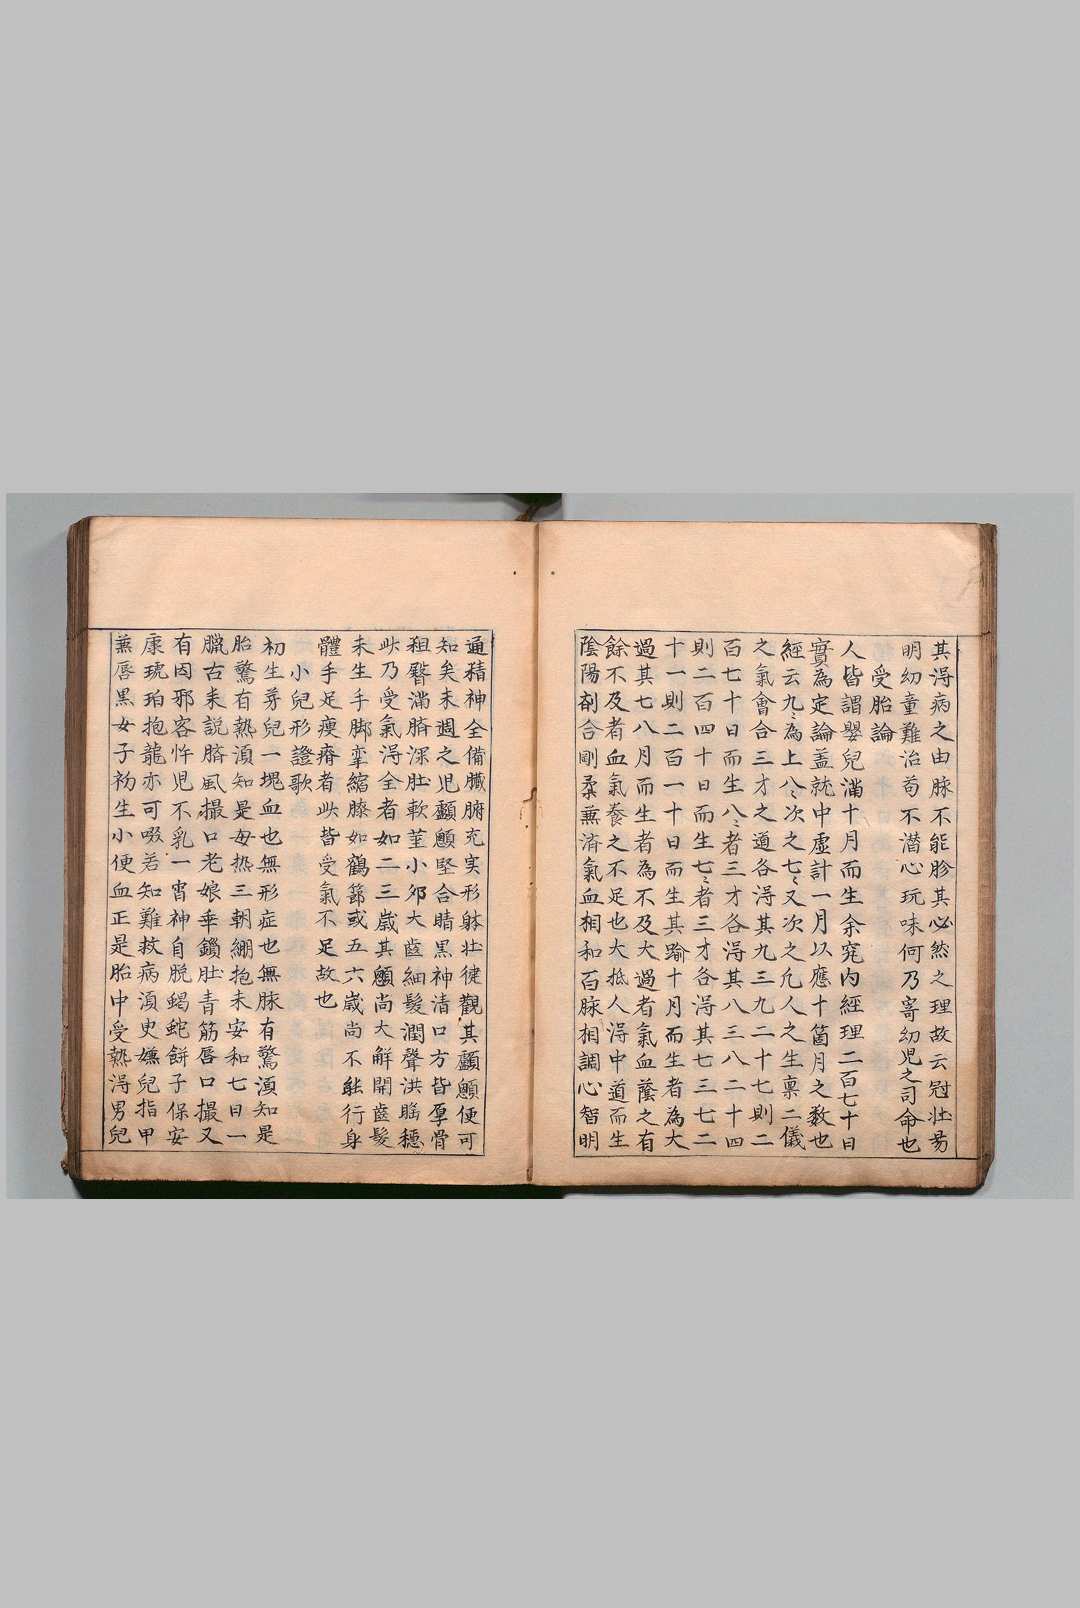 其淂病之由脉不能胗其必然之理故云冠壮昜
明幼童難治苟不潜心玩味何乃寄幼児之司命也
受胎論
人皆謂嬰兒滿十月而生余究内經理二百七十日
實為定論盖就中虛計一月以應十箇月之数也
經云九〻為上八〻次之七〻又次之凢人之生禀二儀
之氣會合三才之道各淂其九三九二十七則二
百七十日而生八〻者三才各淂其八三八二十四
則二百四十日而生七〻者三才各淂其七三七二
十一則二百一十日而生其踰十月而生者為大
過其七八月而生者為不及大過者氣血蔭之有
餘不及者血氣養之不足也大抵人淂中道而生
陰陽剤合剛柔兼済氣血相和百脉相調心智明
通精神全備臓腑充実形躰壮徤觀其顱顖便可
知矣未週之児顱顖堅合睛黒神清口方皆厚骨
粗臀滿臍深肚軟莖小夘大齒細髮潤聲洪睡穩
此乃受氣淂全者如二三歲其顖尚大解開齒髮
未生手脚挛縮膝如鶴節或五六歲尚不能行身
體手足瘦瘠者此皆受氣不足故也
小兒形證歌
初生芽兒一塊血也無形症也無脉有驚湏知是
胎驚有熱湏知是母热三朝綳抱未安和七日一
臘古来説臍風撮口老娘牵鎖肚青筋唇口撮又
有因邪客忤児不乳一宵神自脱蝎蛇餅子保安
康琥珀抱龍亦可啜若知難救病湏叓嬭兒指甲
兼唇黒女子初生小便血正是胎中受熱淂男兒